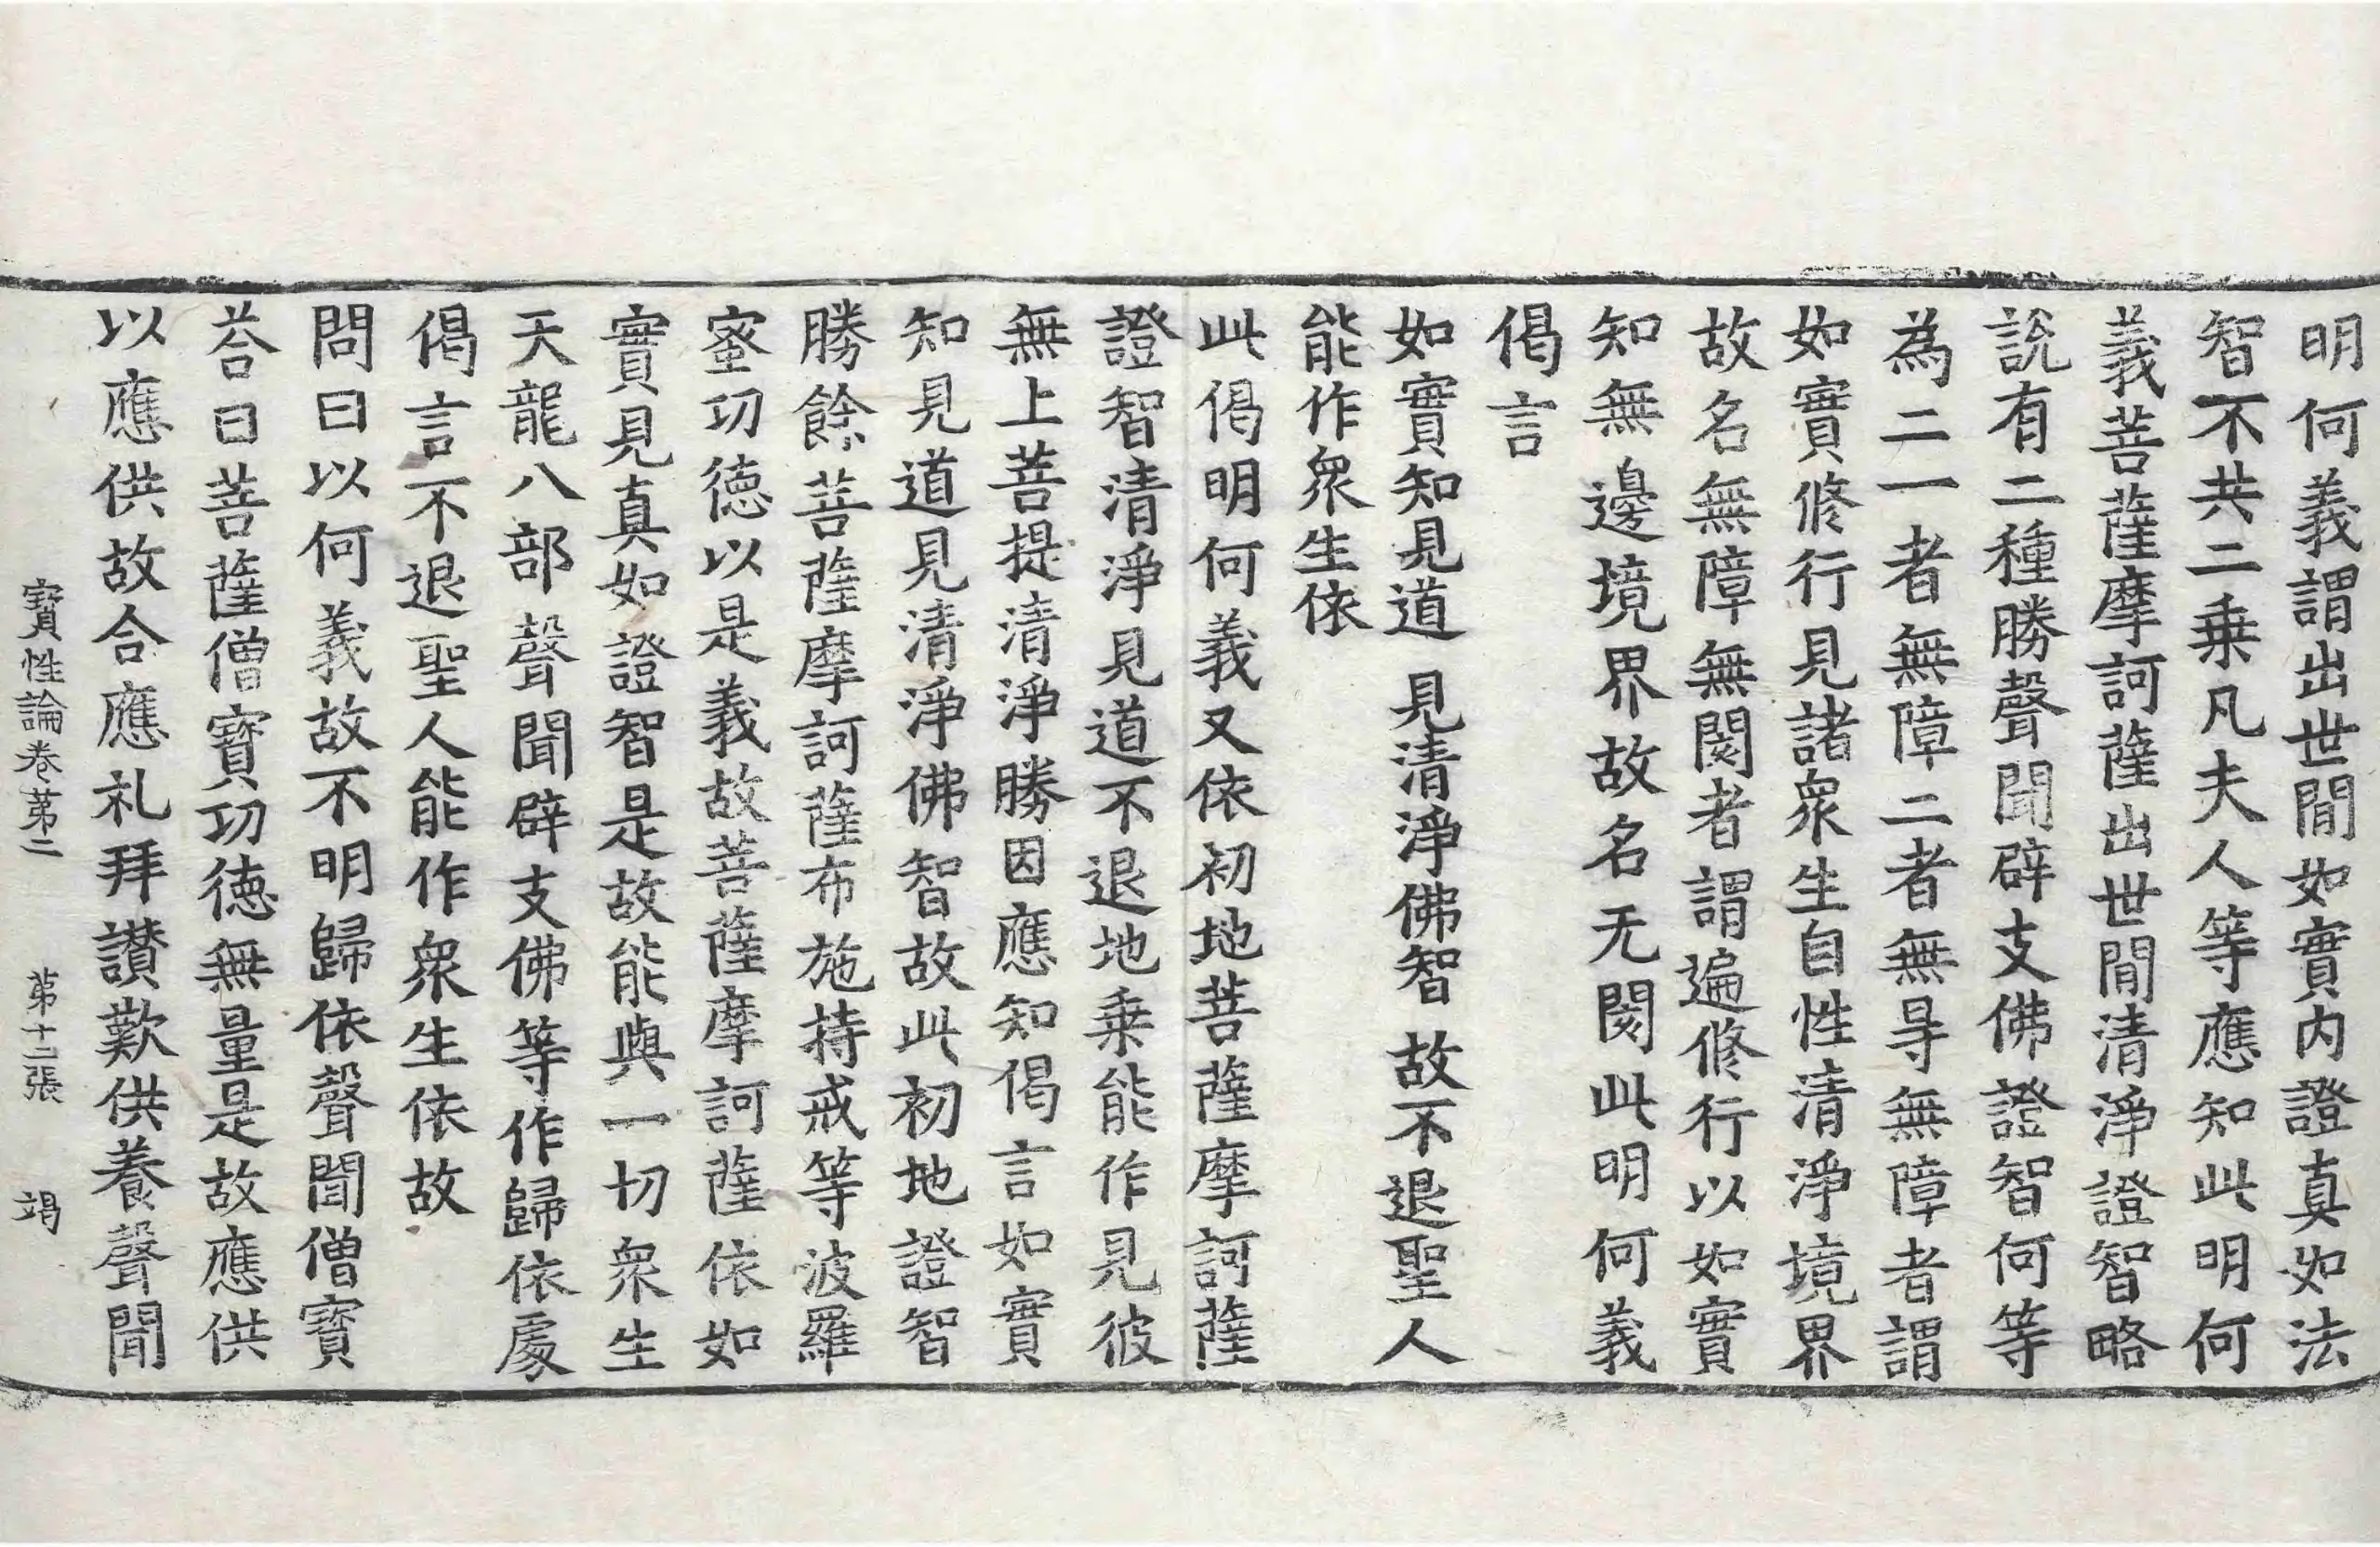 明何義謂出世間如實内證真如法
智不共二乗凡夫人等應知此明何
義菩薩摩訶薩出世間清淨證智略
說有二種勝聲聞辟支佛證智何等
為二一者無障二者無㝵無障者謂
如實修行見諸衆生自性清淨境界
故名無障無閡者謂遍修行以如實
知無邊境界故名无閡此明何義
偈言
如實知見道 見清淨佛智 故不退聖人
能作衆生依
此偈明何義又依初地菩薩摩訶薩
證智清淨見道不退地乗能作見彼
無上菩提清淨勝因應知偈言如實
知見道見清淨佛智故此初地證智
勝餘菩薩摩訶薩布施持戒等波羅
蜜功德以是義故菩薩摩訶薩依如
實見真如證智是故能與一切衆生
天龍八部聲聞辟支佛等作歸依處
偈言不退聖人能作衆生依故
問曰以何義故不明歸依聲聞僧寶
荅曰菩薩僧寶功德無量是故應供
以應供故合應礼拜讃歎供養聲聞
寶性論卷第二 第十二張 竭